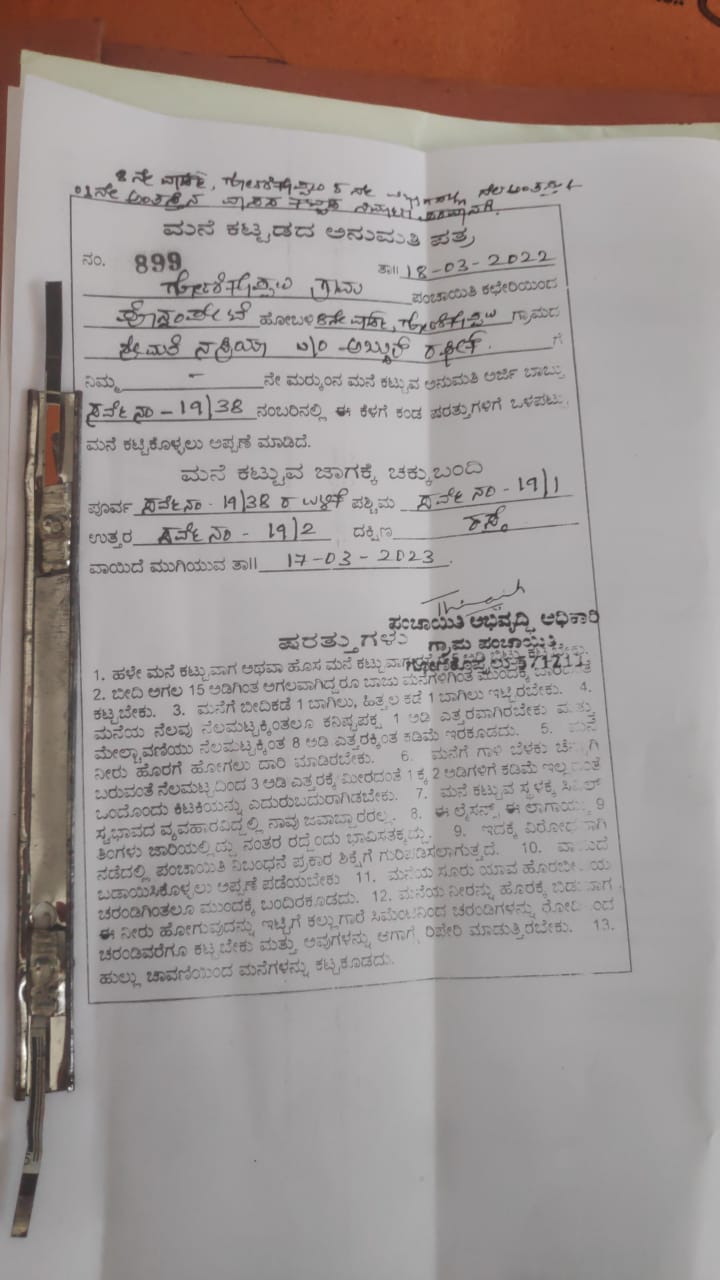 8ನೇ ವಾರ್ಡ್, ಗೋಣಿಕೊಪ್ಪಲು 8ನೇ ನೆಲ ಅಂತಸ್ತು &
01ನೇ ಅಂತಸ್ತಿನ ವಾಸದ ಕಟ್ಟಡ ಪರವಾನಗಿ
ಮನೆ ಕಟ್ಟಡದ ಅನುಮತಿ ಪತ್ರ
ನಂ. 899 ತಾ॥ 18-03-2022
ಗೋಣಿಕೊಪ್ಪಲು ಗ್ರಾಮ ಪಂಚಾಯಿತಿ ಕಛೇರಿಯಿಂದ
ಪೊನ್ನಂಪೇಟೆ ಹೋಬಳಿ 8ನೇ ವಾರ್ಡ್, ಗೋಣಿಕೊಪ್ಪಲು ಗ್ರಾಮದ
ಶ್ರೀಮತಿ ನಶ್ರಿಯಾ w/o ಅಬ್ದುಲ್ ರಫೀಕ್. ಗೆ
ನಿಮ್ಮ - ನೇ ಮರ್‍ಕುಂನ ಮನೆ ಕಟ್ಟುವ ಅನುಮತಿ ಅರ್ಜಿ ಬಾಬ್ತು
ಸರ್ವೆ ನಂ - 19/38 ನಂಬರಿನಲ್ಲಿ ಈ ಕೆಳಗೆ ಕಂಡ ಷರತ್ತುಗಳಿಗೆ ಒಳಪಟ್ಟು
ಮನೆ ಕಟ್ಟಿಕೊಳ್ಳಲು ಅಪ್ಪಣೆ ಮಾಡಿದೆ.
ಮನೆ ಕಟ್ಟುವ ಜಾಗಕ್ಕೆ ಚಕ್ಕುಬಂದಿ
ಪೂರ್ವ ಸರ್ವೆ ನಂ - 19/38 ರ ಪಶ್ಚಿಮ ಸರ್ವೆ ನಂ - 19/1
ಉತ್ತರ ಸರ್ವೆ ನಂ - 19/2 ದಕ್ಷಿಣ ರಸ್ತೆ
ವಾಯಿದೆ ಮುಗಿಯುವ ತಾ॥ 17-03-2023.
ಪಂಚಾಯಿತಿ ಅಭಿವೃದ್ಧಿ ಅಧಿಕಾರಿ
ಷರತ್ತುಗಳು ಗ್ರಾಮ ಪಂಚಾಯಿತಿ
ಗೋಣಿಕೊಪ್ಪಲು-571213
1. ಹಳೇ ಮನೆ ಕಟ್ಟುವಾಗ ಅಥವಾ ಹೊಸ ಮನೆ ಕಟ್ಟುವಾಗ ಅಡಿ ಬಿಟ್ಟು ಕಟ್ಟಬೇಕು.
2. ಬೀದಿ ಅಗಲ 15 ಅಡಿಗಿಂತ ಅಗಲವಾಗಿದ್ದರೂ ಬಾಬು ಮನೆಗಳಿಗಿಂತ ಮುಂದಕ್ಕೆ ಬಾರದಂತೆ
ಕಟ್ಟಬೇಕು. 3. ಮನೆಗೆ ಬೀದಿಕಡೆ 1 ಬಾಗಿಲು, ಹಿತ್ತಲ ಕಡೆ 1 ಬಾಗಿಲು ಇಟ್ಟಿರಬೇಕು. 4.
ಮನೆಯ ನೆಲವು ನೆಲಮಟ್ಟಕ್ಕಿಂತಲೂ ಕನಿಷ್ಟಪಕ್ಷ 1 ಅಡಿ ಎತ್ತರವಾಗಿರಬೇಕು ಮತ್ತು
ಮೇಲ್ಚಾವಣಿಯು ನೆಲಮಟ್ಟಕ್ಕಿಂತ 8 ಅಡಿ ಎತ್ತರಕ್ಕಿಂತ ಕಡಿಮೆ ಇರಕೂಡದು. 5. ಮನೆ
ನೀರು ಹೊರಗೆ ಹೋಗಲು ದಾರಿ ಮಾಡಿರಬೇಕು. 6. ಮನೆಗೆ ಗಾಳಿ ಬೆಳಕು ಚೆನ್ನಾಗಿ
ಬರುವಂತೆ ನೆಲಮಟ್ಟದಿಂದ 3 ಅಡಿ ಎತ್ತರಕ್ಕೆ ಮೀರದಂತೆ 1 ಕ್ಕೆ 2 ಅಡಿಗಳಿಗೆ ಕಡಿಮೆ ಇಲ್ಲದಂತೆ
ಒಂದೊಂದು ಕಿಟಕಿಯನ್ನು ಎದುರುಬದುರಾಗಿಡಬೇಕು. 7. ಮನೆ ಕಟ್ಟುವ ಸ್ಥಳಕ್ಕೆ ಸಿವಿಲ್
ಸ್ವಭಾವದ ವ್ಯವಹಾರವಿದ್ದಲ್ಲಿ ನಾವು ಜವಾಬ್ದಾರರಲ್ಲ. 8. ಈ ಲೈಸನ್ಸ್ ಈ ಲಾಗಾಯ್ತು 9
ತಿಂಗಳು ಜಾರಿಯಲ್ಲಿದ್ದು ನಂತರ ರದ್ದೆಂದು ಭಾವಿಸತಕ್ಕದ್ದು. 9. ಇದಕ್ಕೆ ವಿರೋಧವಾಗಿ
ನಡೆದಲ್ಲಿ ಪಂಚಾಯಿತಿ ನಿಬಂಧನೆ ಪ್ರಕಾರ ಶಿಕ್ಷೆಗೆ ಗುರಿಪಡಿಸಲಾಗುತ್ತದೆ. 10. ವಾಯಿದೆ
ಬಡಾಯಿಸಿಕೊಳ್ಳಲು ಅಪ್ಪಣೆ ಪಡೆಯಬೇಕು 11. ಮನೆಯ ಸೂರು ಯಾವ ಹೊರಬೀದಿಯ
ಚರಂಡಿಗಿಂತಲೂ ಮುಂದಕ್ಕೆ ಬಂದಿರಕೂಡದು. 12. ಮನೆಯ ನೀರನ್ನು ಹೊರಕ್ಕೆ ಬಿಡುವಾಗ
ಈ ನೀರು ಹೋಗುವುದನ್ನು ಇಟ್ಟಿಗೆ ಕಲ್ಲುಗಾರೆ ಸಿಮೆಂಟಿನಿಂದ ಚರಂಡಿಗಳನ್ನು ರೋಡಿನಿಂದ
ಚರಂಡಿವರೆಗೂ ಕಟ್ಟಬೇಕು ಮತ್ತು ಅವುಗಳನ್ನು ಆಗಾಗ್ಗೆ ರಿಪೇರಿ ಮಾಡುತ್ತಿರಬೇಕು. 13.
ಹುಲ್ಲು ಚಾವಣಿಯಿಂದ ಮನೆಗಳನ್ನು ಕಟ್ಟಕೂಡದು.